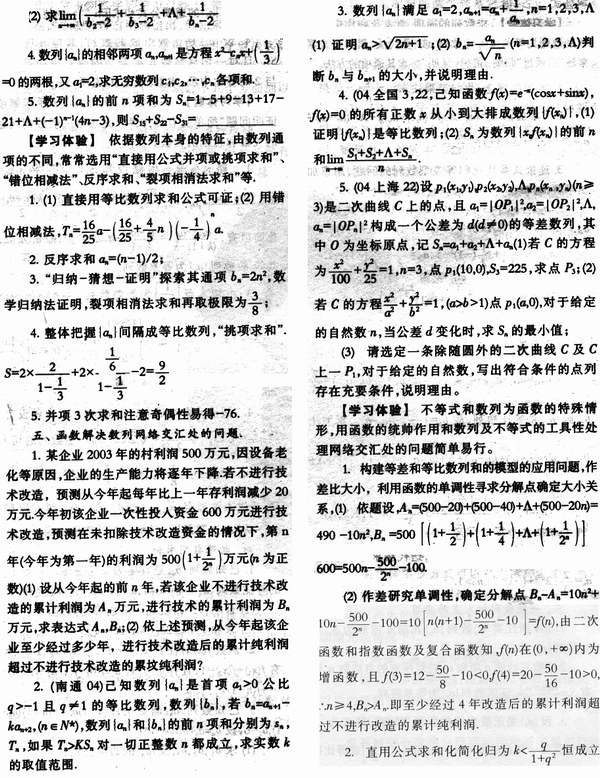 (2) 求lim(1/(b₂-2)+1/(b₃-2)+Λ+1/(bₙ-2)
4. 数列{aₙ}的相邻两项aₙ,aₙ₊₁是方程x²-cₙx+(1/3)ⁿ
=0的两根,又a₁=2,求无穷数列c₁,c₂,…,cₙ各项和.
5. 数列{aₙ}的前n项和为Sₙ=1-5+9-13+17-
21+Λ+(-1)ⁿ⁻¹(4n-3),则S₁₅+S₂₂-S₃₁=
【学习体验】 依据数列本身的特征,由数列通
项的不同,常常选用“直接用公式并项或挑项求和”、
“错位相减法”、反序求和、“裂项相消法求和”等.
1. (1) 直接用等比数列求和公式可证;(2) 用错
位相减法,Tₙ=16/25a-(16/25+4/5n)(-1/4)ⁿa.
2. 反序求和aₙ=(n-1)/2;
3. “归纳-猜想-证明”探索其通项bₙ=2n²,数
学归纳法证明,裂项相消法求和再取极限为3/8;
4. 整体把握{aₙ}间隔成等比数列,“挑项求和”.
S=2×2/(1-1/3)+2×(1/6)/(1-1/3)-2=9/2
5. 并项3次求和注意奇偶性易得-76.
五、函数解决数列网络交汇处的问题.
1. 某企业2003年的村利润500万元,因设备老
化等原因,企业的生产能力将逐年下降.若不进行技
术改造，预测从今年起每年比上一年存利润减少20
万元.今年初该企业一次性投入资金600万元进行技
术改造,预测在未扣除技术改造资金的情况下,第n
年(今年为第一年)的利润为500(1+1/2ⁿ)万元(n为正
数)(1) 设从今年起的前n年,若该企业不进行技术改
造的累计利润为Aₙ万元,进行技术的累计利润为Bₙ
万元,求表达式Aₙ,Bₙ;(2) 依上述预测,从今年起该企
业至少经过多少年，进行技术改造后的累计纯利润
超过不进行技术改造的累坟纯利润?
2. (南通04)已知数列{aₙ}是首项a₁>0公比
q>-1且q≠1的等比数列,数列{bₙ},若bₙ=aₙ₊₁-
kaₙ₊₂,(n∈N*),数列{aₙ}和{bₙ}的前n项和分别为sₙ,
Tₙ,如果Tₙ>KSₙ对一切正整数n都成立,求实数k
的取值范围.
3. 数列{aₙ}满足a₁=2,aₙ₊₁=aₙ+1/aₙ,n=1,2,3,Λ
(1) 证明aₙ>√(2n+1);(2) bₙ=aₙ/√n(n=1,2,3,Λ)判
断bₙ与bₙ₊₁的大小,并说明理由.
4. (04全国3,22,已知函数f(x)=e⁻ˣ(cosx+sinx),
f(x)=0的所有正数x从小到大排成数列{f(xₙ)},(1)
证明{f(xₙ)}是等比数列;(2) Sₙ为数列{xₙf(xₙ)}的前n
和lim(S₁+S₂+Λ+Sₙ)/n.
5. (04上海22)设p₁(x₁,y₁),p₂(x₂,y₂),Λ,pₙ(xₙ,yₙ)(n≥
3)是二次曲线C上的点,且a₁=|OP₁|²,a₂=|OP₂|²,Λ,
aₙ=|OPₙ|²构成一个公差为d(d≠0)的等差数列,其
中O为坐标原点,记Sₙ=a₁+a₂+Λ+aₙ(1)若C的方程
为x²/100+y²/25=1,n=3,点p₁(10,0),S₃=225,求点P₃;(2)
若C的方程x²/a²+y²/b²=1,(a>b>1)点p₁(a,0),对于给定
的自然数n,当公差d变化时,求Sₙ的最小值;
(3) 请选定一条除随圆外的二次曲线C及C
上一P₁,对于给定的自然数,写出符合条件的点列
存在充要条件,说明理由。
【学习体验】 不等式和数列为函数的特殊情
形,用函数的统帅作用和数列及不等式的工具性处
理网络交汇处的问题简单易行。
1. 构建等差和等比数列和的模型的应用问题,作
差比大小，利用函数的单调性寻求分解点确定大小关
系,(1) 依题设,Aₙ=(500-20)+(500-40)+Λ+(500-20n)=
490-10n²,Bₙ=500[(1+1/2)+(1+1/4)+Λ+(1+1/2ⁿ)]
600=500n-500/2ⁿ-100.
(2) 作差研究单调性,确定分解点Bₙ-Aₙ=10n²+
10n-500/2ⁿ-100=10[n(n+1)-500/2ⁿ-10]=f(n),由二次
函数和指数函数及复合函数知,f(n)在(0,+∞)内为
增函数,且f(3)=12-50/8-10<0,f(4)=20-50/16-10>0,
∴n≥4,Bₙ>Aₙ.即至少经过4年改造后的累计利润超
过不进行改造的累计纯利润.
2. 直用公式求和化简化归为k<q/(1+q²)恒成立